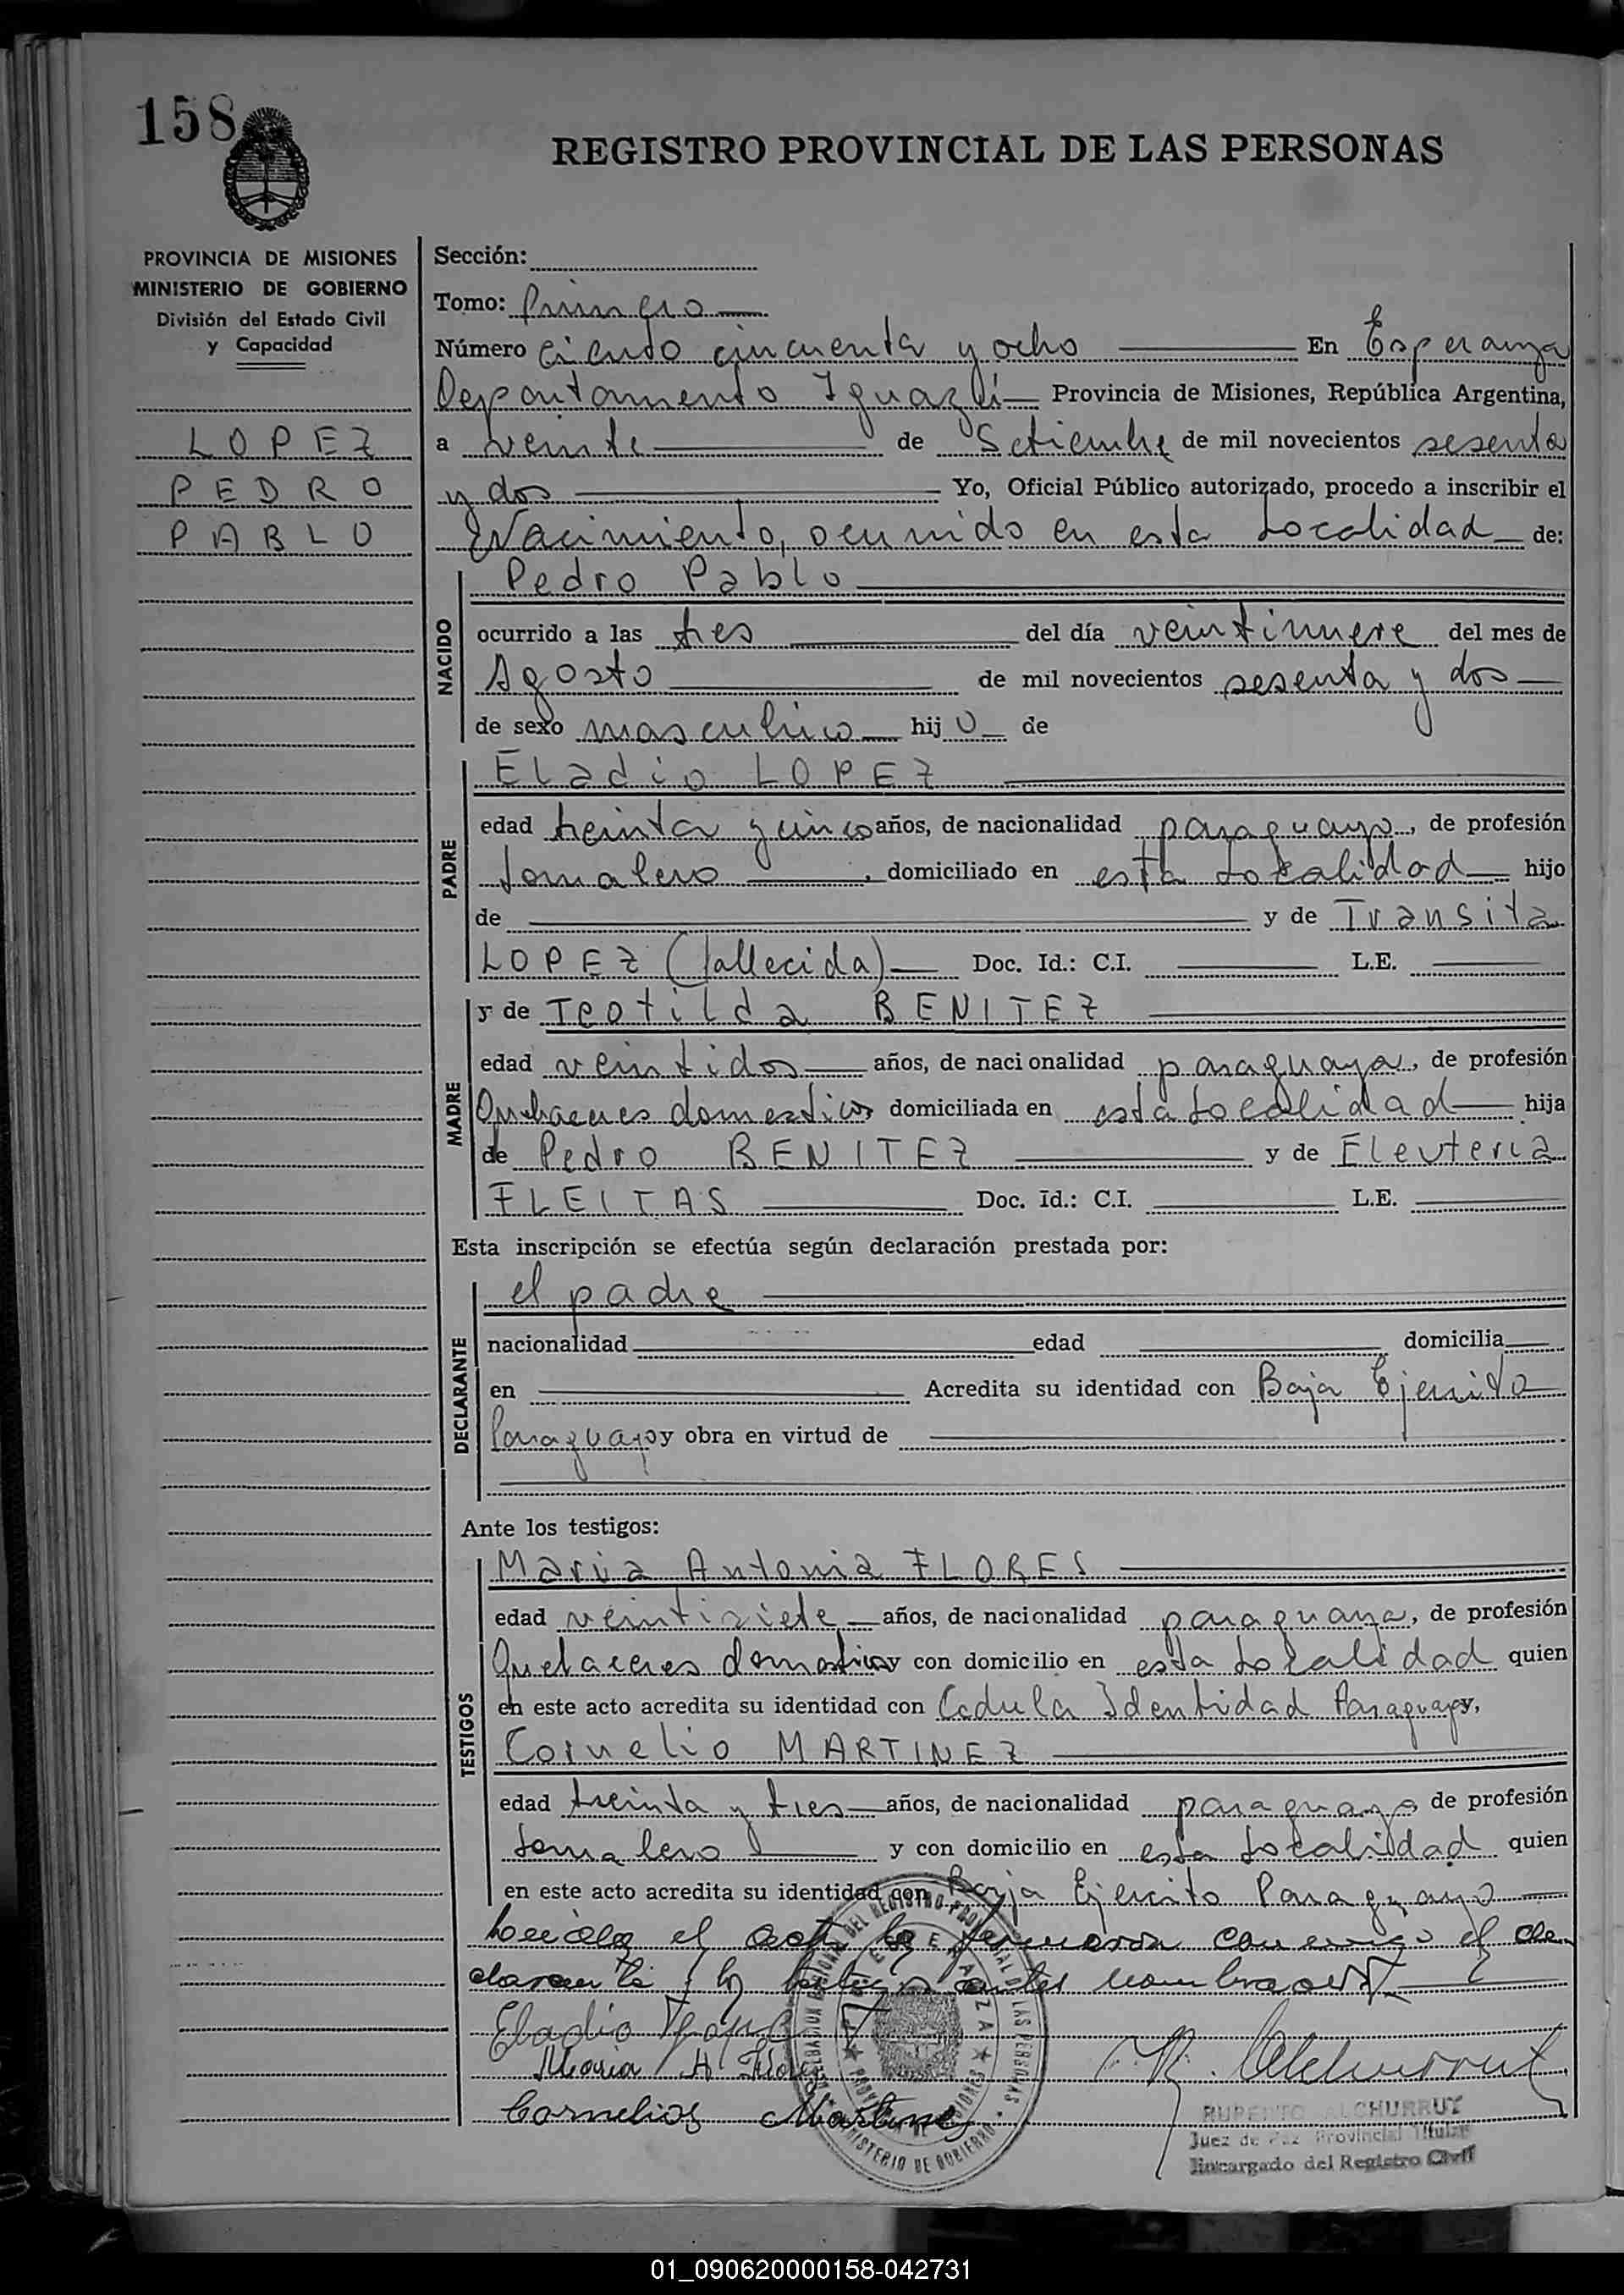 158
REGISTRO PROVINCIAL DE LAS PERSONAS
PROVINCIA DE MISIONES
MINISTERIO DE GOBIERNO
División del Estado Civil
y Capacidad
LOPEZ
PEDRO
PABLO
Sección:
Tomo: Primero
Número Ciento cincuenta y ocho En Esperanza
Departamento Iguazú Provincia de Misiones, República Argentina,
a veinte de Setiembre de mil novecientos sesenta
y dos Yo, Oficial Público autorizado, procedo a inscribir el
Nacimiento, ocurrido en esta Localidad de:
NACIDO
Pedro Pablo
ocurrido a las tres del día veintinueve del mes de
Agosto de mil novecientos sesenta y dos
de sexo masculino hijo de
PADRE
Eladio LOPEZ
edad treinta y cinco años, de nacionalidad paraguayo, de profesión
Jornalero, domiciliado en esta Localidad hijo
de y de Transita
LOPEZ (fallecida) Doc. Id.: C.I. L.E.
MADRE
y de Teotilda BENITEZ
edad veintidos años, de nacionalidad paraguaya, de profesión
Quehaceres domesticos domiciliada en esta Localidad hija
de Pedro BENITEZ y de Eleuteria
FLEITAS Doc. Id.: C.I. L.E.
Esta inscripción se efectúa según declaración prestada por:
DECLARANTE
el padre
nacionalidad edad domicilia
en Acredita su identidad con Baja Ejercito
Paraguayo y obra en virtud de
Ante los testigos:
TESTIGOS
Maria Antonia FLORES
edad veintisiete años, de nacionalidad paraguaya, de profesión
Quehaceres domesticos y con domicilio en esta Localidad quien
en este acto acredita su identidad con Cedula Identidad Paraguay y,
Cornelio MARTINEZ
edad treinta y tres años, de nacionalidad paraguayo de profesión
Jornalero y con domicilio en esta Localidad quien
en este acto acredita su identidad con Baja Ejercito Paraguayo
Leida el acta la firmaron conmigo el de
clarante y los testigos antes nombrados
Eladio
Maria A Flores
Cornelio Martinez
DELEGACION REGIONAL DEL REGISTRO PROVINCIAL DE LAS PERSONAS
ESPERANZA
MINISTERIO DE GOBIERNO
R. Alchurrut
ALCHURRUT
Juez de Paz Provincial Titular
Encargado del Registro Civil
01_090620000158-042731